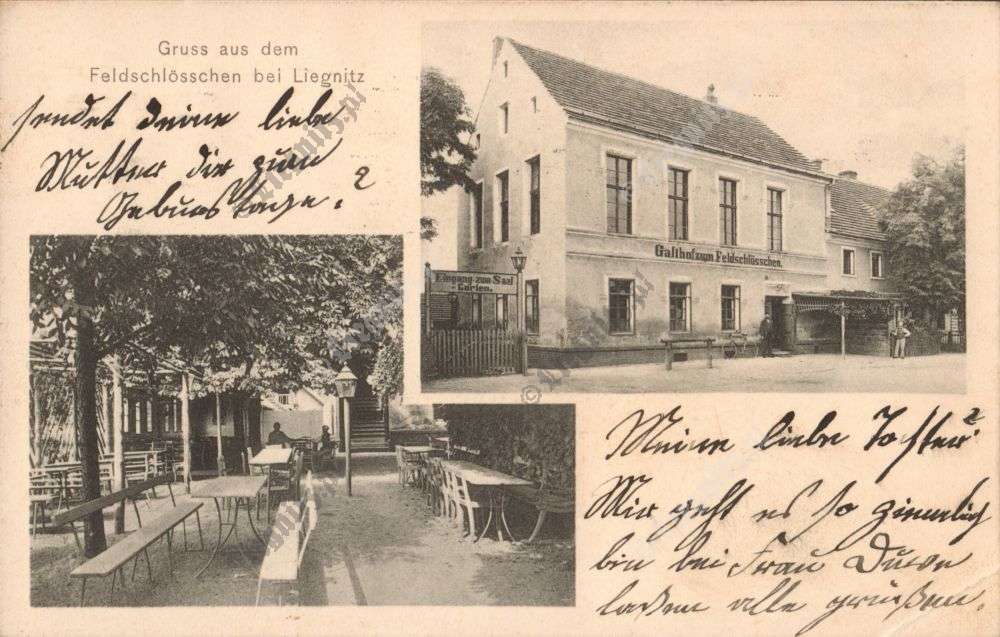 Gruss aus dem
Feldschlösschen bei Liegnitz
sendet deine liebe
Mutter dir zum
Geburtstage.
Gasthof zum Feldschlösschen.
Eingang zum Saal
Garten.
Meine liebe Tochter
Mir geht es so ziemlich
bin bei Frau
lassen alle grüßen.